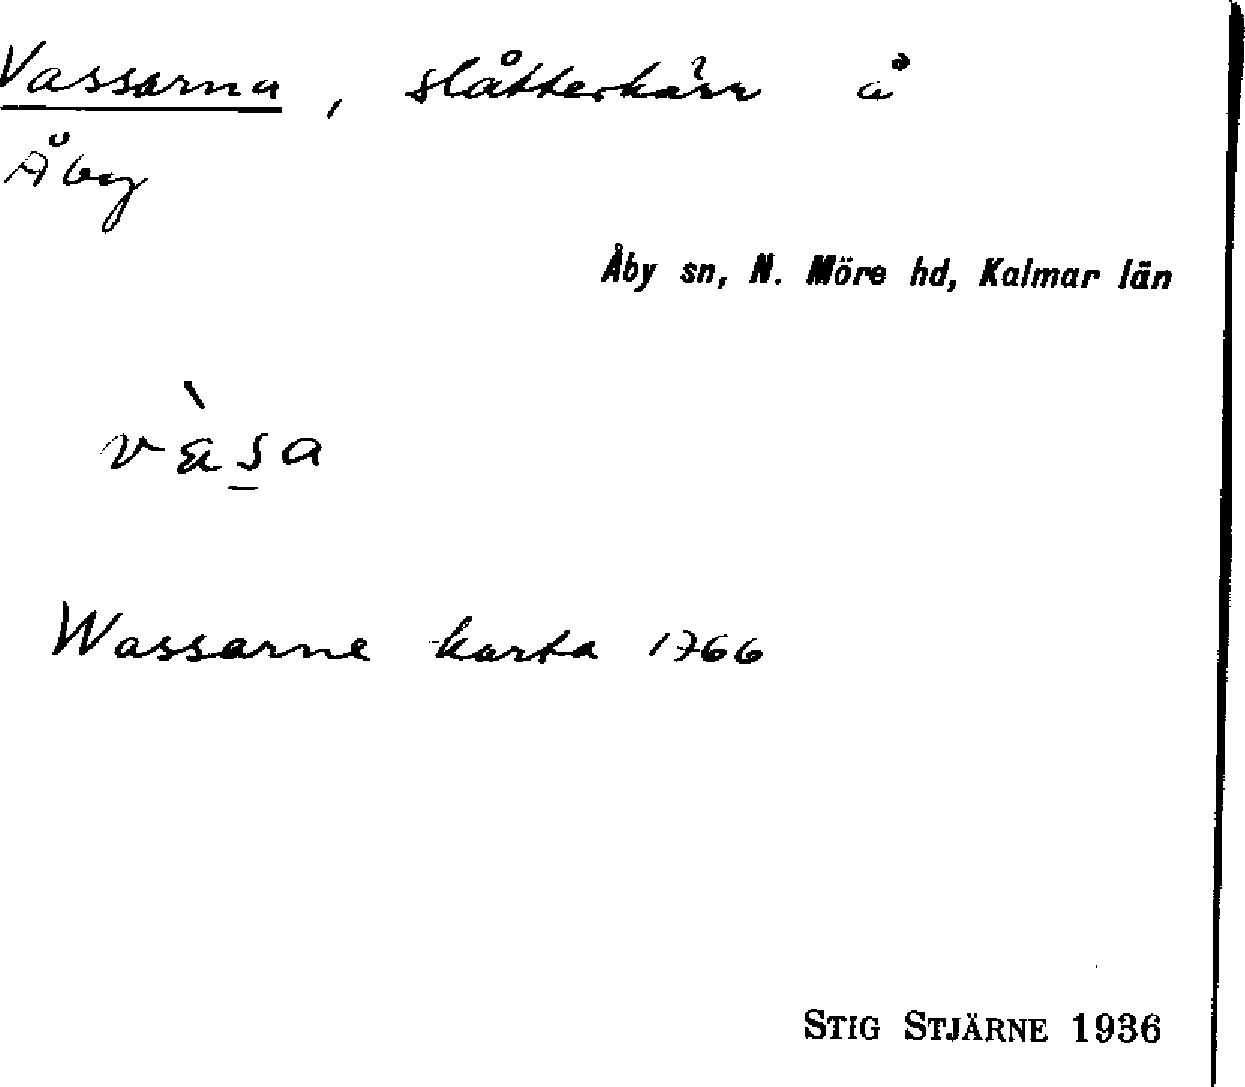 Vassarna, slåtterkärr å
Åby
Åby sn, N. Möre hd, Kalmar län
vàs̠a
Wassarne karta 1766
STIG STJÄRNE 1936